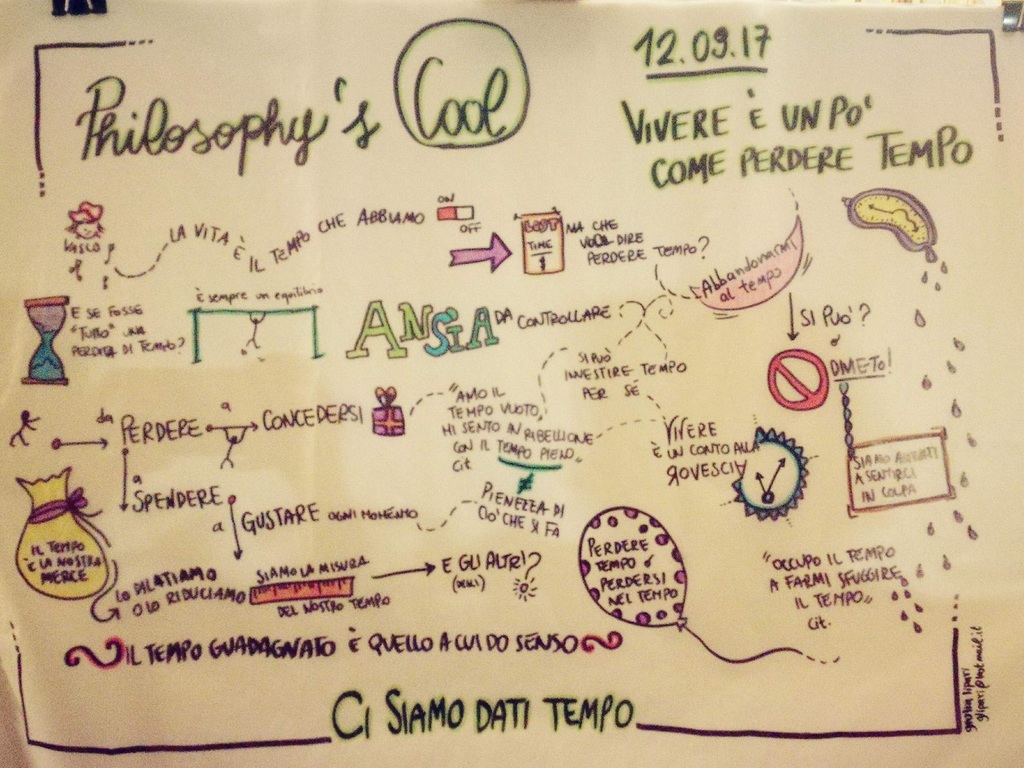 Philosophy's Cool
12.09.17
VIVERE È UN PO'
COME PERDERE TEMPO
VASCO
LA VITA È IL TEMPO CHE ABBIAMO
ON
OFF
LOST
TIME
MA CHE
VUOL DIRE
PERDERE TEMPO?
Abbandonarmi
al tempo
SI PUO'?
DIVIETO!
SIAMO ABITUATI
A SENTIRCI
IN COLPA
E SE FOSSE
"TUTTO" UNA
PERDITA DI TEMPO?
È sempre un equilibrio
ANSIA DA CONTROLLARE
SI PUÒ
INVESTIRE TEMPO
PER SÉ
da PERDERE a CONCEDERSI
"AMO IL
TEMPO VUOTO,
MI SENTO IN RIBELLIONE
CON IL TEMPO PIENO"
cit.
≠
PIENEZZA DI
CIO' CHE SI FA
VIVERE
È UN CONTO ALLA
ROVESCIA
a
SPENDERE
a GUSTARE OGNI MOMENTO
IL TEMPO
È LA NOSTRA
MERCE
LO DILATIAMO
O LO RIDUCIAMO
SIAMO LA MISURA
DEL NOSTRO TEMPO
E GLI ALTRI?
PERDERE
TEMPO O
PERDERSI
NEL TEMPO
"OCCUPO IL TEMPO
A FARMI SFUGGIRE
IL TEMPO"
cit.
IL TEMPO GUADAGNATO È QUELLO A CUI DO SENSO
CI SIAMO DATI TEMPO
glipari@hotmail.it